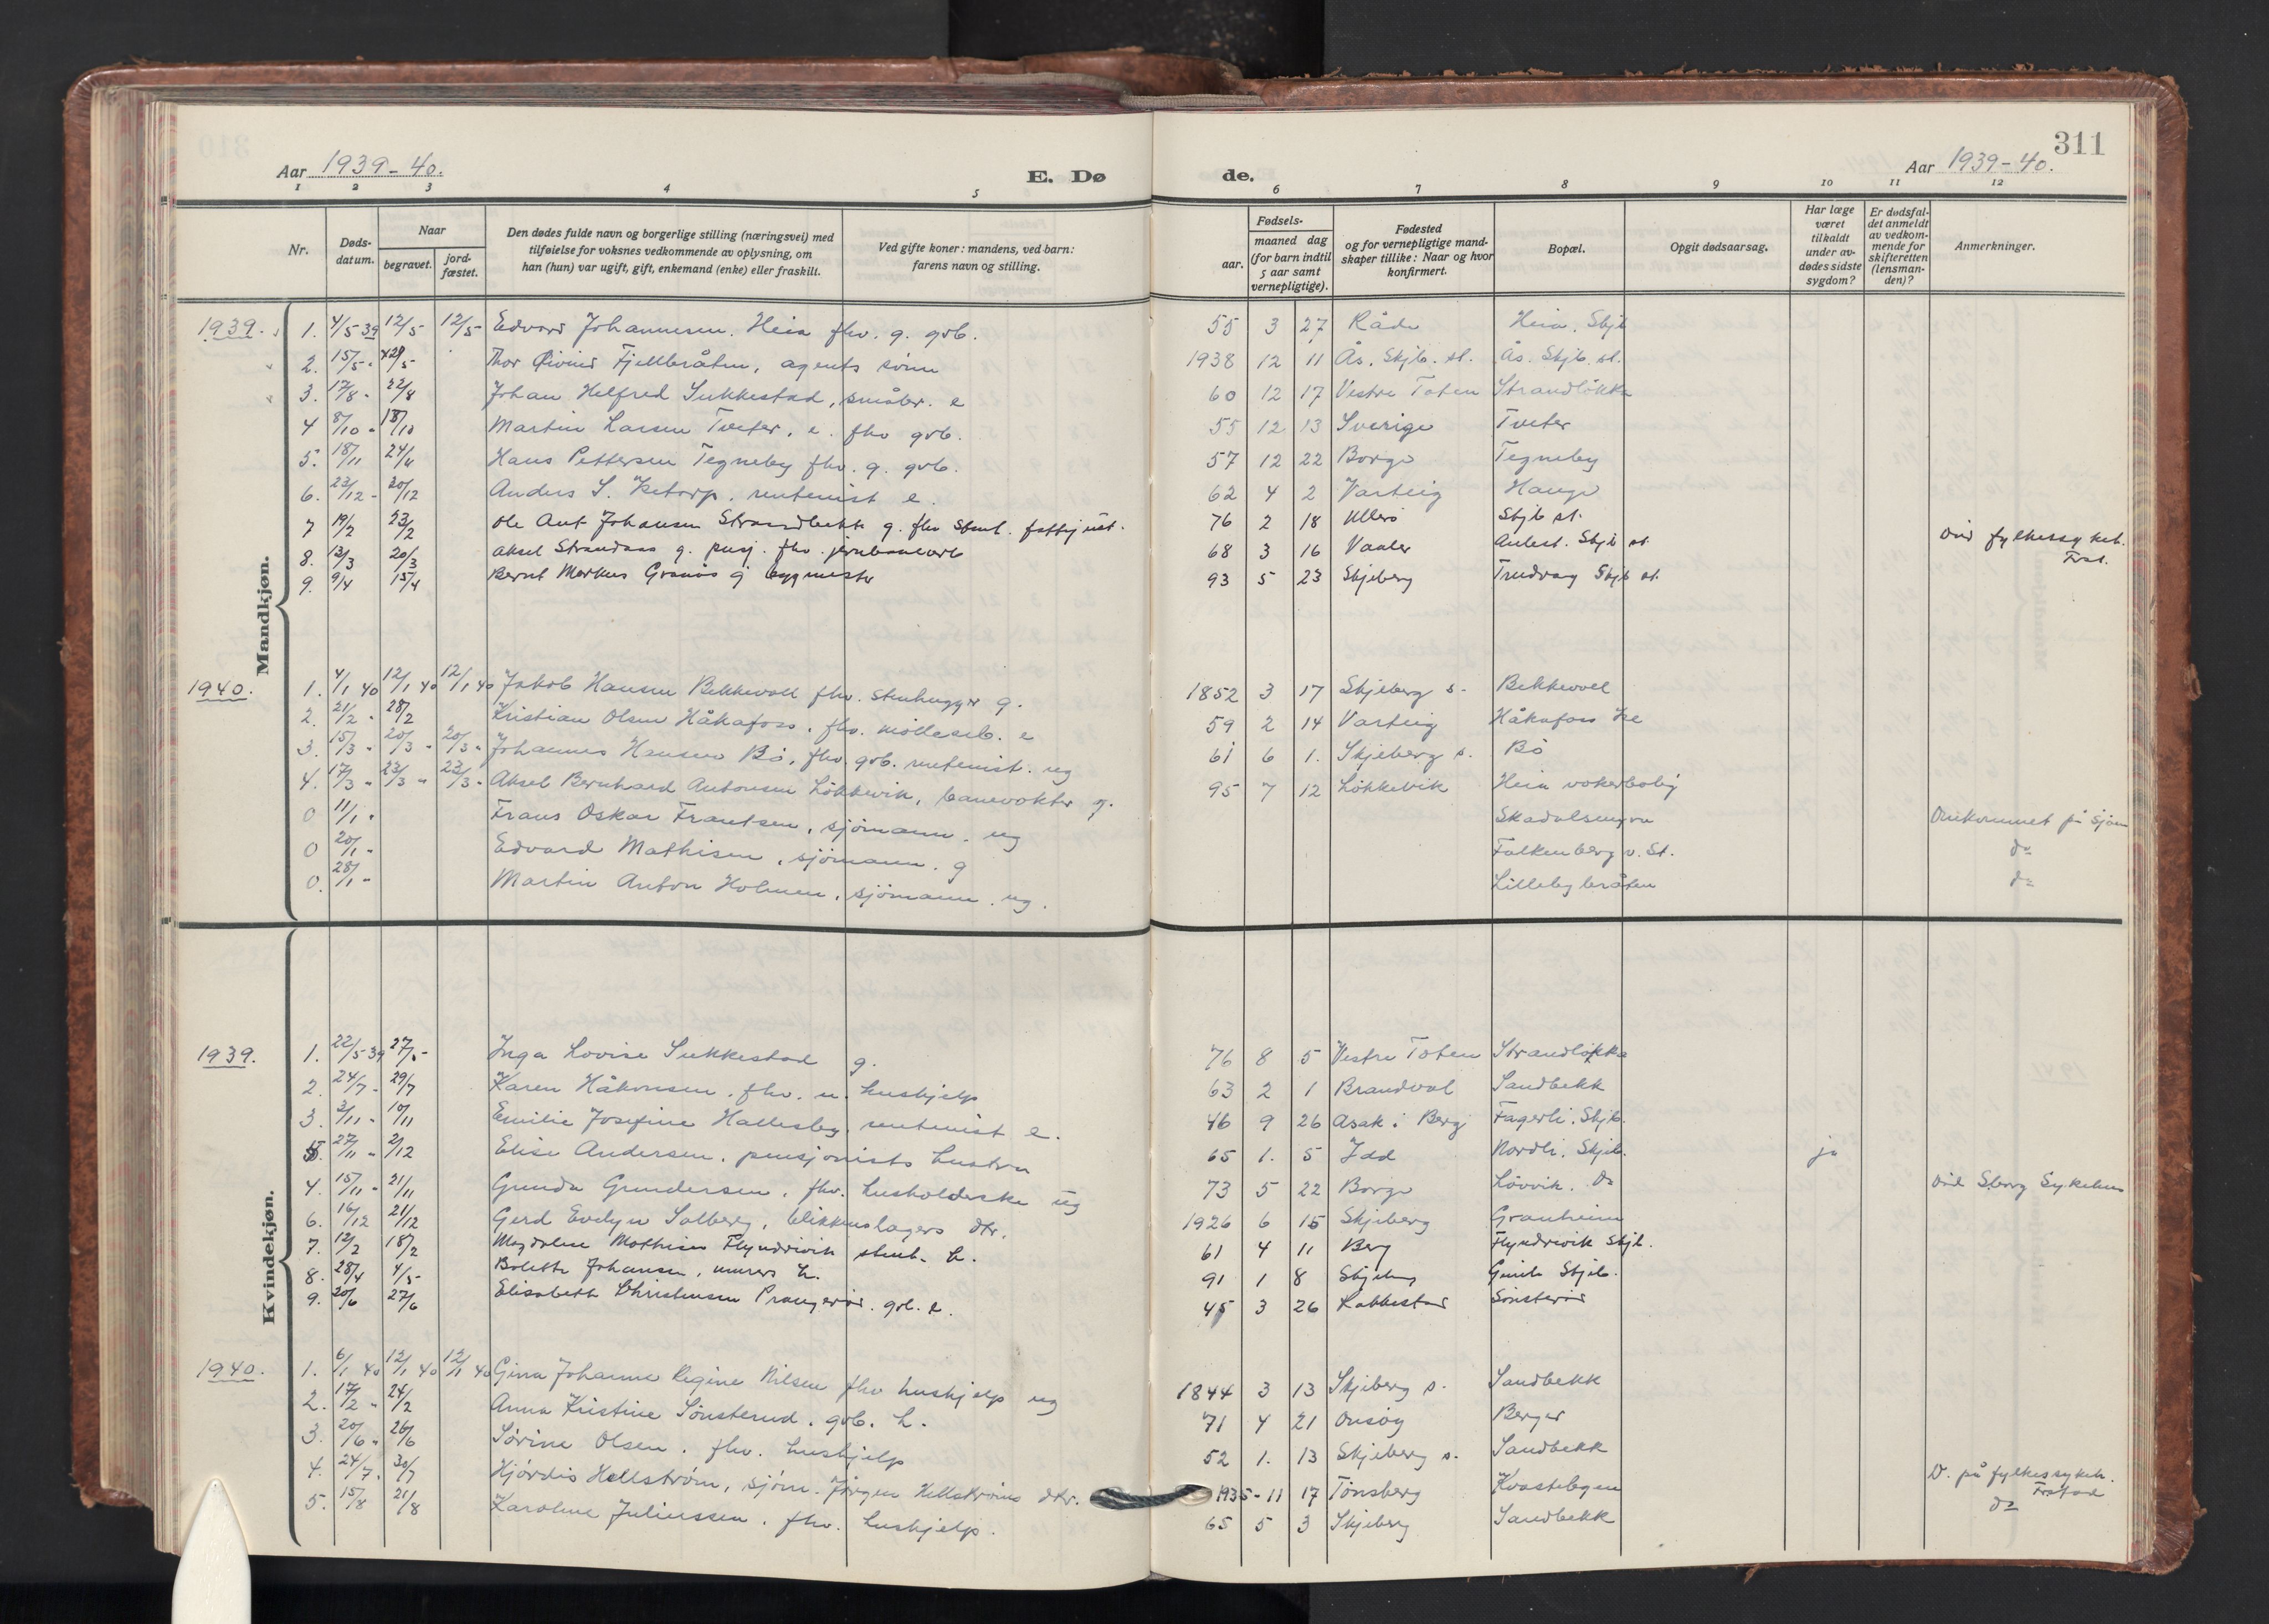 311
Aar 1939-40. E. Dø de. Aar 1939-40.
1 2 3 4 5 6 7 8 9 10 11 12
Nr. Døds-datum. Naar begravet. jord-fæstet. Den dødes fulde navn og borgerlige stilling (næringsvei) med tilføielse for voksnes vedkommende av oplysning, om han (hun) var ugift, gift, enkemand (enke) eller fraskilt. Ved gifte koner: mandens, ved barn: farens navn og stilling. Fødsels- aar. maaned dag (for barn indtil 5 aar samt vernepligtige). Fødested og for vernepligtige mandskaper tillike: Naar og hvor konfirmert. Bopæl. Opgit dødsaarsag. Har læge været tilkaldt under avdødes sidste sygdom? Er dødsfaldet anmeldt av vedkommende for skifteretten (lensmanden)? Anmerkninger.
Mandkjøn.
1939. 1. 4/5 39 12/5 12/5 Edvard Johannesen Heia fhv. g. gvb. 55 3 27 Råde Heia, Skjb
2. 15/5 - Thor Øivind Fjellbråten, agents sønn 1938 12 11 Ås. Skjb. st. Ås. Skjb. st.
3. 17/8 - 22/8 Johan Helfred Sukkestad, småbr. e 60 12 17 Vestre Toten Strandløkka
4 8/10 - 13/10 Martin Larsen Tveter, e. fhv gvb. 55 12 13 Sverige Tveter
5. 18/11 24/11 Hans Pettersen Tegneby fhv. g. gvb. 57 12 22 Borge Tegneby
6. 23/12 - 30/12 Anders S. Ketorp, rentenist e. 62 4 2 Varteig Hauge
7 19/2 23/2 Ole Ant. Johansen Strandbekk g. fhv stenh. 76 2 18 Ullerø Skjb st.
8. 13/3 20/3 Aksel Strandaas g. pensj. fhv. jernbane 68 3 16 Vaaler Skjb st. Død fylkessykeh. Frst.
9. 9/4 15/4 Bernt Markus Granås g byggmester 93 5 23 Skjeberg Trudvang Skjb st.
1940. 1. 4/1 40 12/1 40 12/1 40 Jakob Hansen Bekkevoll fhv. stenhugger g. 1852 3 17 Skjeberg s. Bekkevoll
2. 21/2 - 28/2 Kristian Olsen Håkafoss, fhv. møllearb. e 59 2 14 Varteig Håkafoss
3. 15/3 - 20/3 - 20/3 - Johannes Hansen Bø, fhv. gvb. rentenist. ug 61 6 1. Skjeberg s. Bø
4. 17/3 - 23/3 - 23/3 - Aksel Bernhard Antonsen Løkkevik, banevokter g. 95 7 12 Løkkevik Heia vokterbolig
0 11/1 - Frans Oskar Frantsen, sjømann. ug Skadalsengen Omkommet på sjøen
0 20/1 - Edvard Mathisen, sjømann. g Falkenberg v. St. do
0. 28/1 - Martin Anton Holmen, sjømann. ug. Lillebybråten do
Kvindekjøn.
1939. 1. 22/5 39 27/5 - Inga Lovise Sukkestad g. 76 8 5 Vestre Toten Strandløkka
2. 24/7 - 29/7 Karen Håkonsen, fhv. u. hushjelp 63 2 1 Brandval Sandbekk
3. 3/11 - 10/11 Emilie Josefine Hallesby, rentenist e. 46 9 26 Asak i Berg Fagerli, Skjb.
5. 27/11 - 2/12 Elise Andersen, pensjonists hustru 65 1. 5 Idd Nordli, Skjb. ja
4. 15/11 - 21/11 Gunda Gundersen, fhv. husholderske ug 73 5 22 Borge Løvvik. Do Død Sarp Sykehus
6. 16/12 21/12 Gerd Evelyn Solberg, blikkenslagers dtr. 1926 6 15 Skjeberg Granheim
7. 12/2 18/2 Magdalene Mathisen Flyndrevik stenh. h. 61 4 11 Berg Flyndrevik Skjb.
8. 28/4 4/5 - Bolette Johansen, murers h. 91 1 8 Skjeberg Skjb.
9. 20/6 27/6 Elisabeth Christensen Prangerød. gvb. e. 45 3 26 Kabbestad Sønsterød
1940. 1. 6/1 40 12/1 40 12/1 40 Gina Johanne Regine Nilsen fhv hushjelp ug 1844 3 13 Skjeberg s. Sandbekk
2. 17/2 - 24/2 Anna Kristine Sønsterud, gvb. h. 71 4 21 Onsøy Berger
3. 20/6 - 26/6 Sørine Olsen, fhv. hushjelp 52 1. 13 Skjeberg s. Sandbekk
4. 24/7 - 30/7 Hjørdis Hellstrøm, sjøm. Jørgen Hellstrøms dtr. 1935 - 11 17 Tønsberg Kvastebyen D. på fylkessykeh. Frstad
5. 15/8 21/8 Karoline Juliussen, fhv. hushjelp. 65 5 3 Skjeberg Sandbekk do